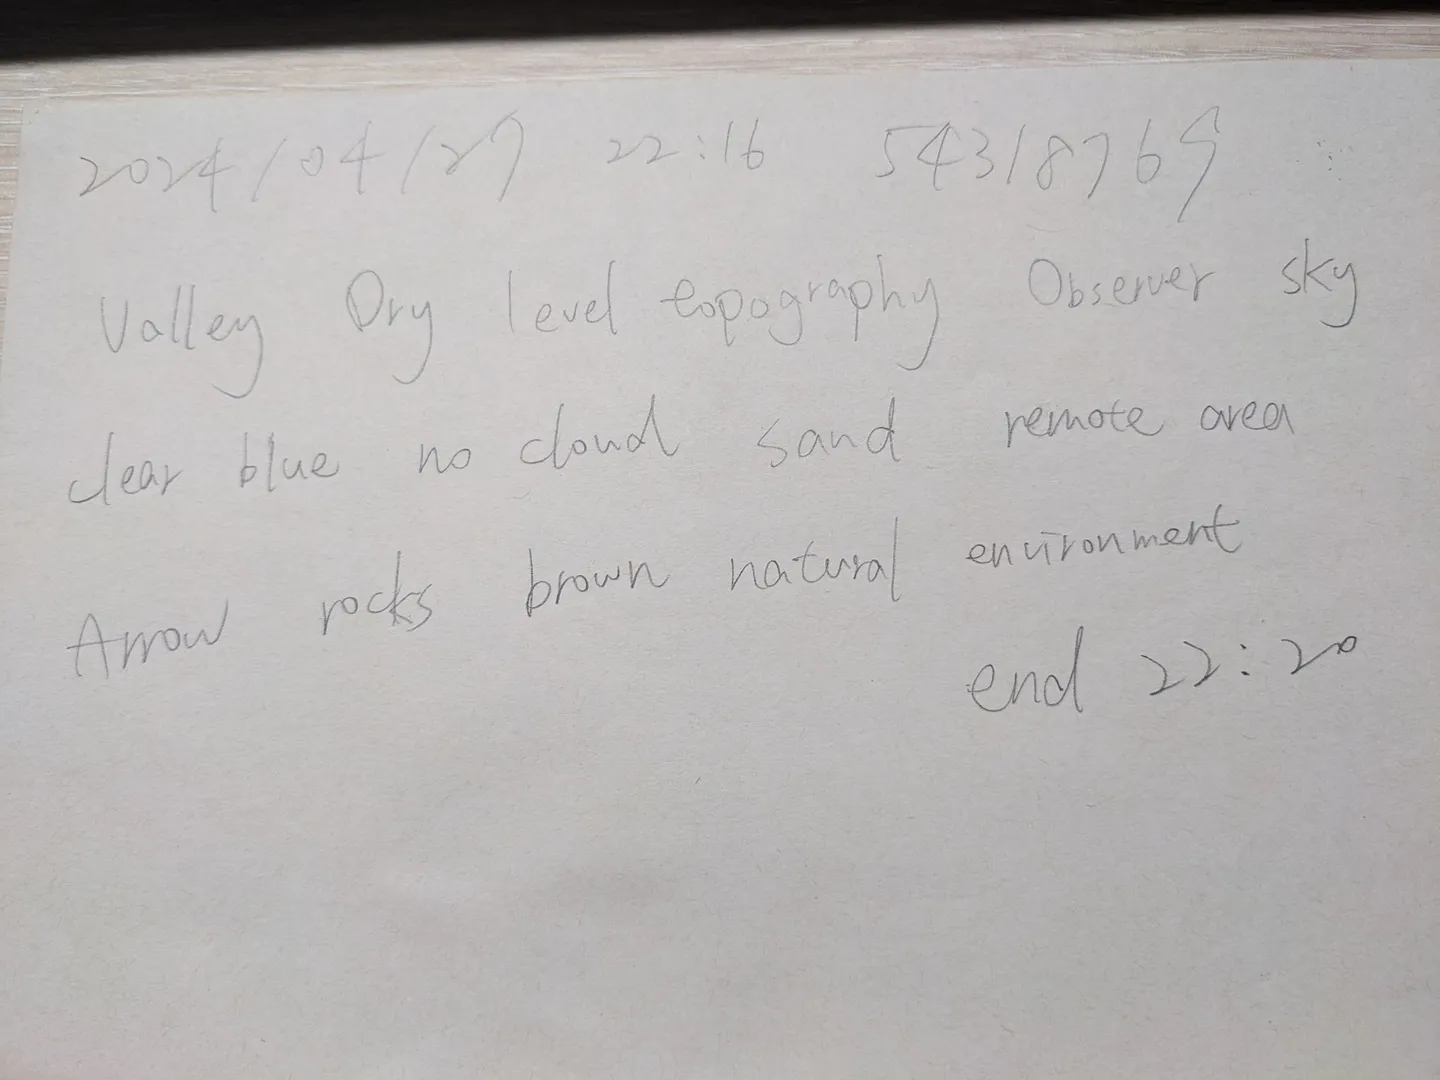 2024/04/27 22:16 54318769
Valley Dry level topography Observer sky
clear blue no cloud sand remote area
Arrow rocks brown natural environment
end 22:20